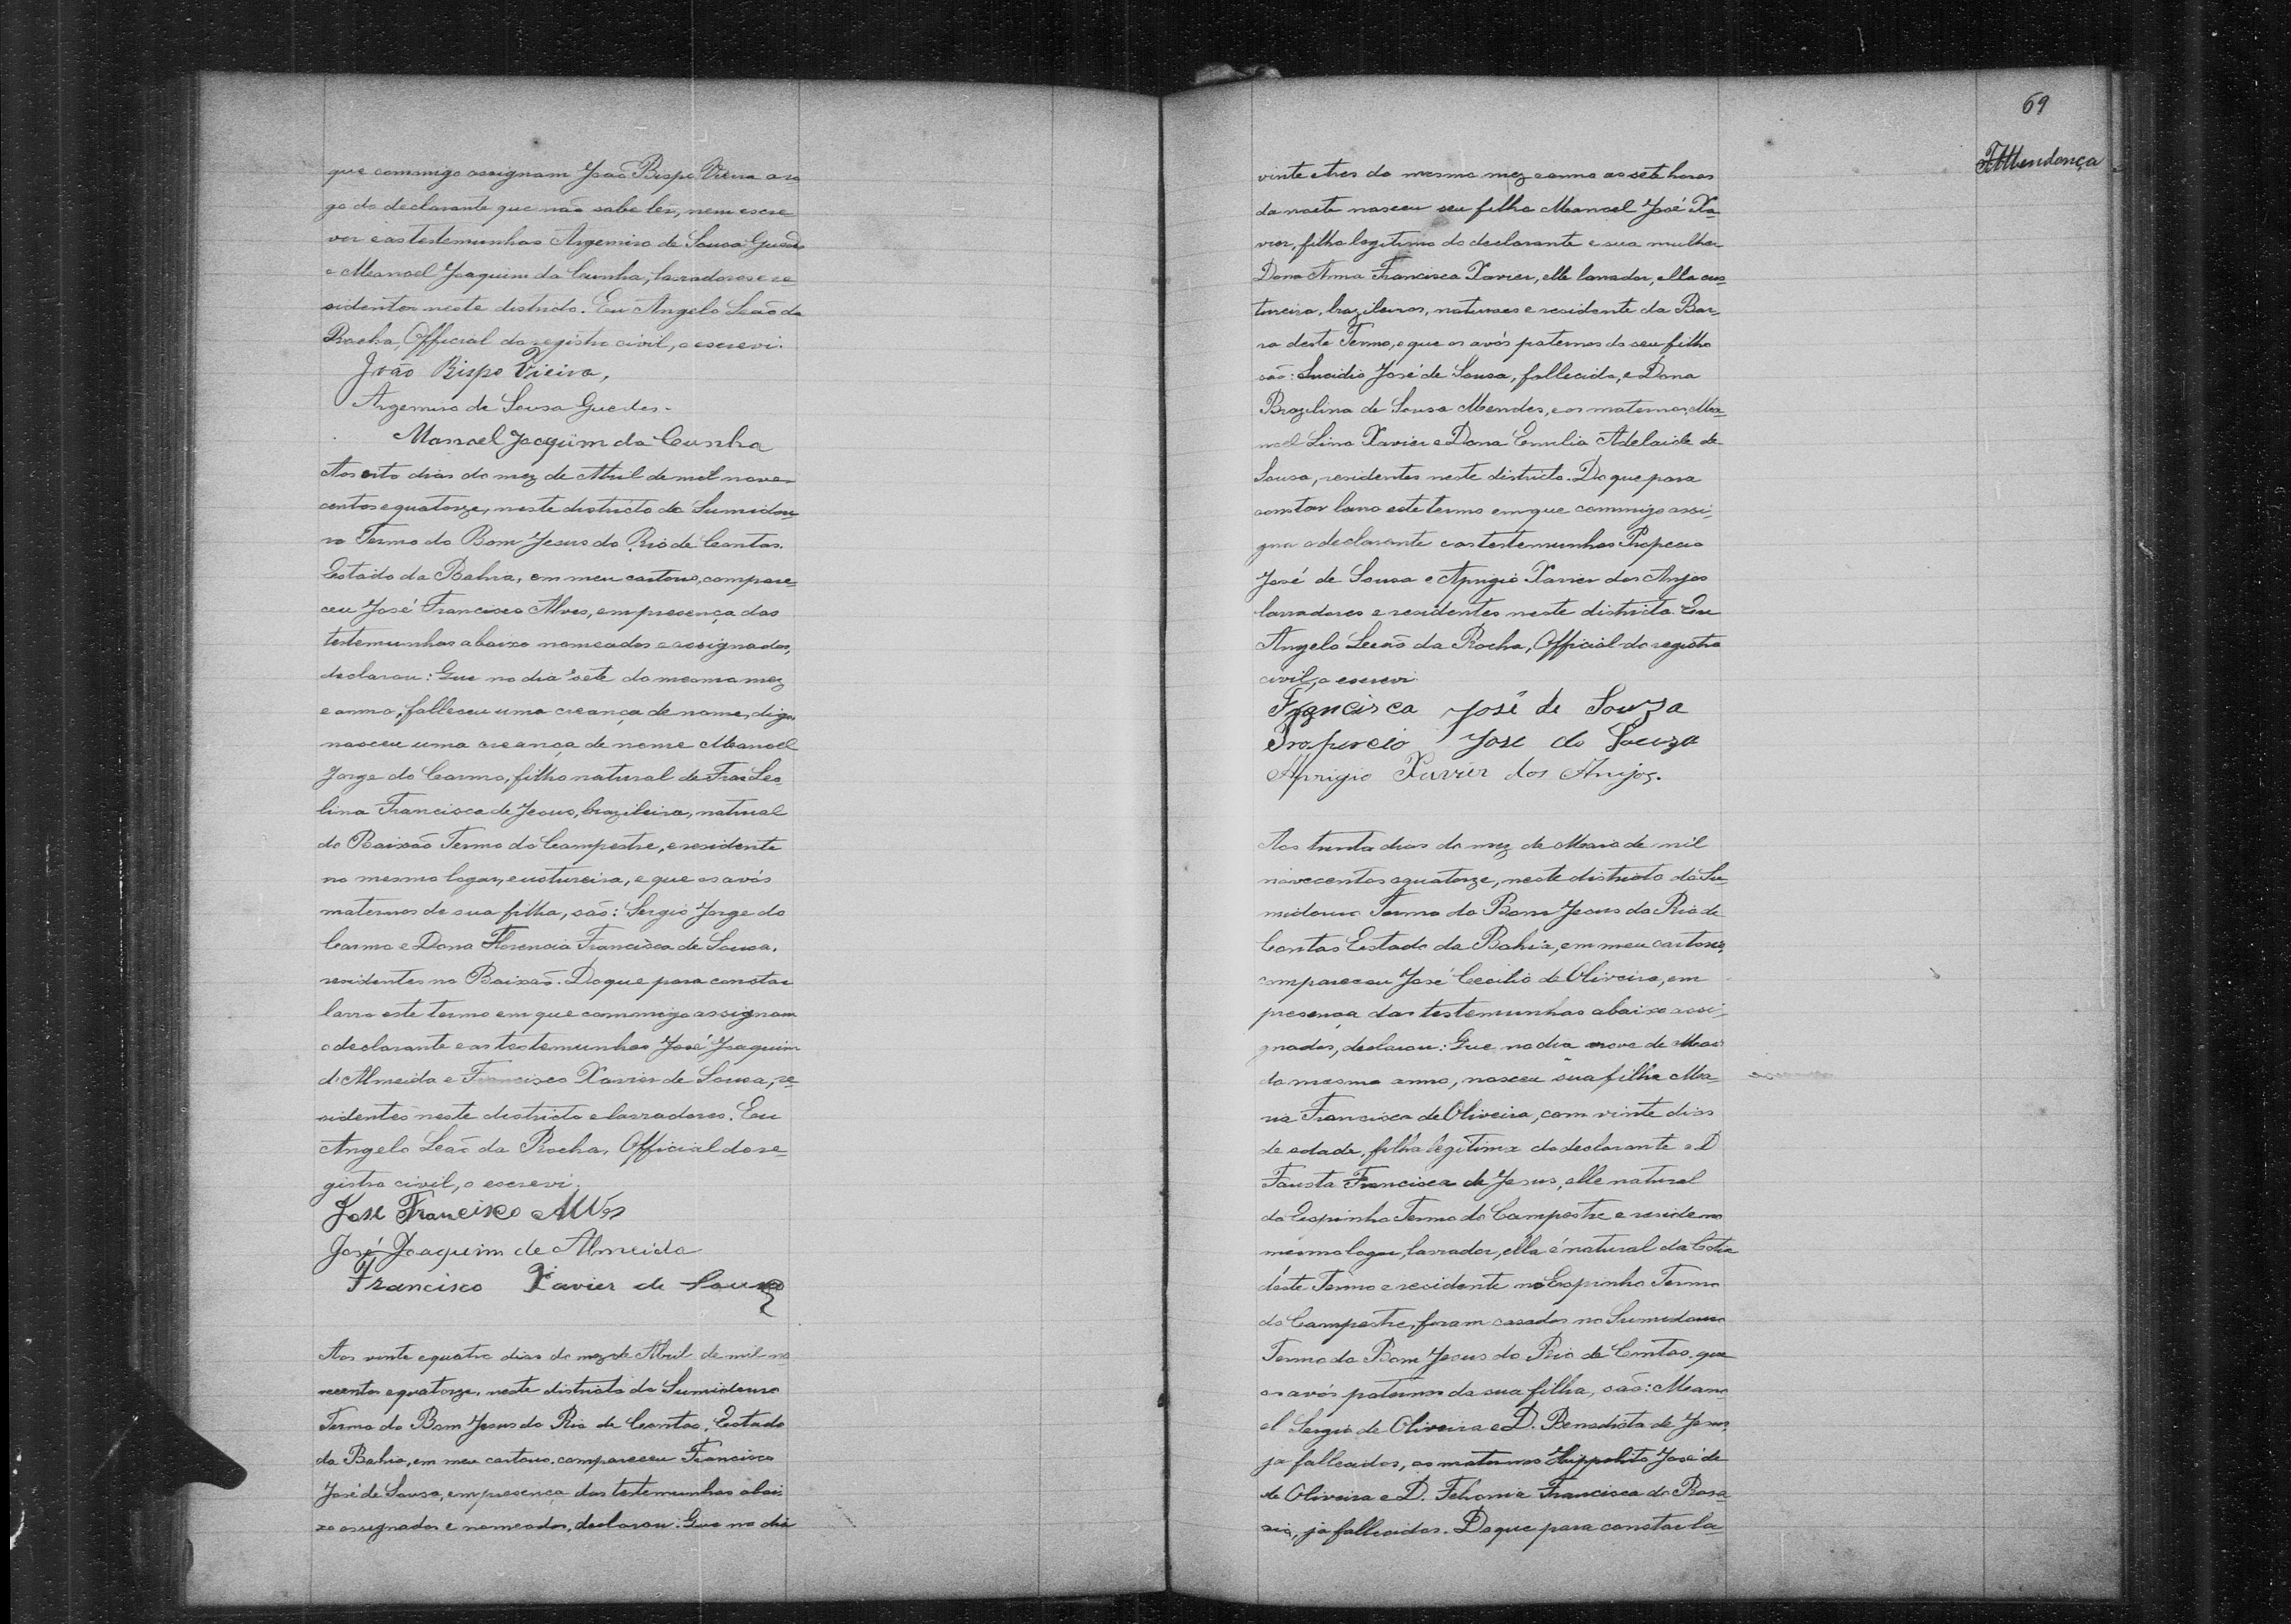 que commigo assignam João Bispo Vieira a ro
go do declarante que não sabe ler, nem escre
ver e as testemunhas Argemiro de Sousa Guedes
e Manoel Joaquim da Cunha, lavradores e re
sidentes neste districto. Eu Angelo Leão da
Rocha, Official do registro civil, o escrevi.
João Bispo Vieira,
Argemiro de Sousa Guedes.
Manoel Joaquim da Cunha
Aos oito dias do mez de Abril de mil nove
centos e quatorze, neste districto do Sumidou
ro Termo do Bom Jesus do Rio de Contas.
Estado da Bahia, em meu cartorio, compare
ceu José Francisco Alves, em presença das
testemunhas abaixo nomeadas e assignadas,
declarou: Que no dia sete do mesmo mez
e anno, falleceu uma creança de nome, digo
nasceu uma creança de nome Manoel
Jorge do Carmo, filho natural de Leo
lina Francisca de Jesus, brazileira, natural
do Baixão Termo do Campestre, e residente
no mesmo logar, custureira, e que os avós
maternos de sua filha, são: Sergio Jorge do
Carmo e Dona Florencia Francisca de Sousa.
residentes no Baixão. Do que para constar
lavro este termo em que commigo assignam
o declarante e as testemunhas José Joaquim
d'Almeida e Francisco Xavier de Sousa, re
sidentes neste districto e lavradores. Eu
Angelo Leão da Rocha, Official do re
gistro civil, o escrevi.
José Francisco Alves
José Joaquim de Almeida
Francisco Xavier de Souza
Aos vinte e quatro dias do mez de Abril de mil no
vecentos e quatorze, neste districto do Sumidouro
Termo do Bom Jesus do Rio de Contas, Estado
da Bahia, em meu cartorio, compareceu Francisco
José de Sousa, em presença das testemunhas abai
xo assignadas e nomeadas, declarou: Que no dia
69
FMendonça
vinte e tres do mesmo mez e anno as sete horas
da noite nasceu seu filho Manoel José Xa
vier, filho legitimo do declarante e sua mulher
Dona Anna Francisca Xavier, elle lavrador, ella cus
tureira, brazileiros, naturaes e residente da Bar
ra deste Termo, e que os avós paternos do seu filho
são: Lucidio José de Sousa, fallecido, e Dona
Brazilina de Sousa Mendes, e os maternos, Ma
noel Lino Xavier e Dona Emilia Adelaide de
Sousa, residentes neste districto. Do que para
constar lavro este termo em que commigo assi
gna o declarante e as testemunhas Propercio
José de Sousa e Aprigio Xavier dos Anjos
lavradores e residentes neste districto. Eu
Angelo Leão da Rocha, Official do registro
civil, o escrevi.
Francisca José de Souza
Propercio José de Souza
Aprigio Xavier dos Anjos.
Aos trinta dias do mez de Maio de mil
novecentos e quatorze, neste districto do Su
midouro Termo do Bom Jesus do Rio de
Contas Estado da Bahia, em meu cartorio,
compareceu José Cecilio de Oliveira, em
presença das testemunhas abaixo assi
gnadas, declarou: Que no dia nove de Maio
do mesmo anno, nasceu sua filha Ma
ria Francisca de Oliveira, com vinte dias
de edade, filha legitima do declarante e D
Fausta Francisca de Jesus, elle natural
do Espinho Termo do Campestre e reside no
mesmo logar, lavrador, ella é natural da
deste Termo e residente no Espinho Termo
do Campestre, foram casados no Sumidouro
Termo do Bom Jesus do Rio de Contas. que
os avós paternos da sua filha, são: Mano
el Sergio de Oliveira e D. Benedicta de Jesus,
ja fallecidos, os maternos Hippolito José de
de Oliveira e D. Francisca do Rosa
rio, ja fallecidos. Do que para constar la